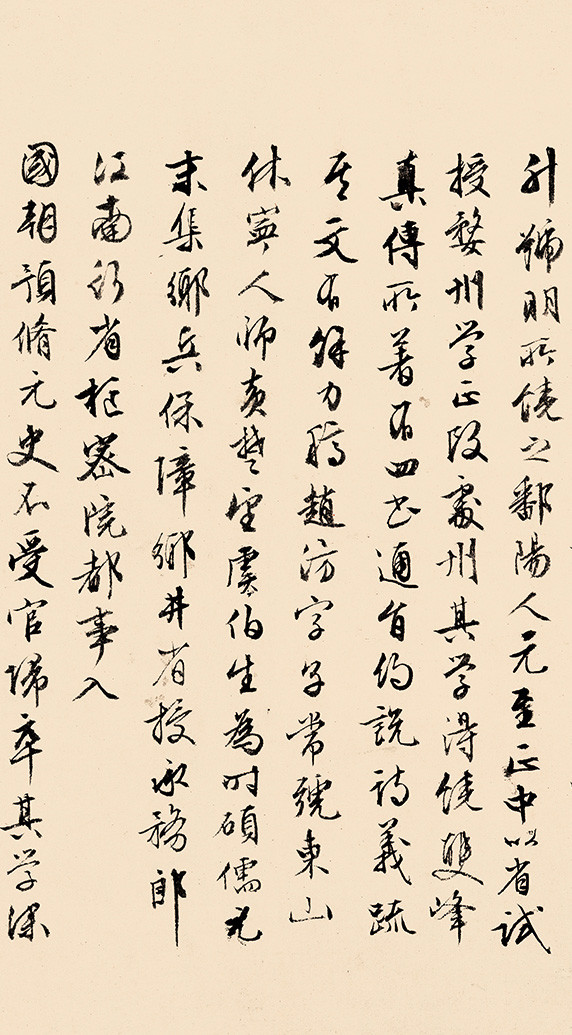 升號明所饒之鄱陽人元至正中以省試
授婺州学正改處州其学得饒雙峰
真傳所著有四书通旨約説詩義疏
其文有餘力稿趙汸字子常號東山
休寧人师黄楚望虞伯生為时碩儒元
末集鄉兵保障鄉井省授承務郎
江南行省枢密院都事入
國朝預脩元史不受官歸卒其学深